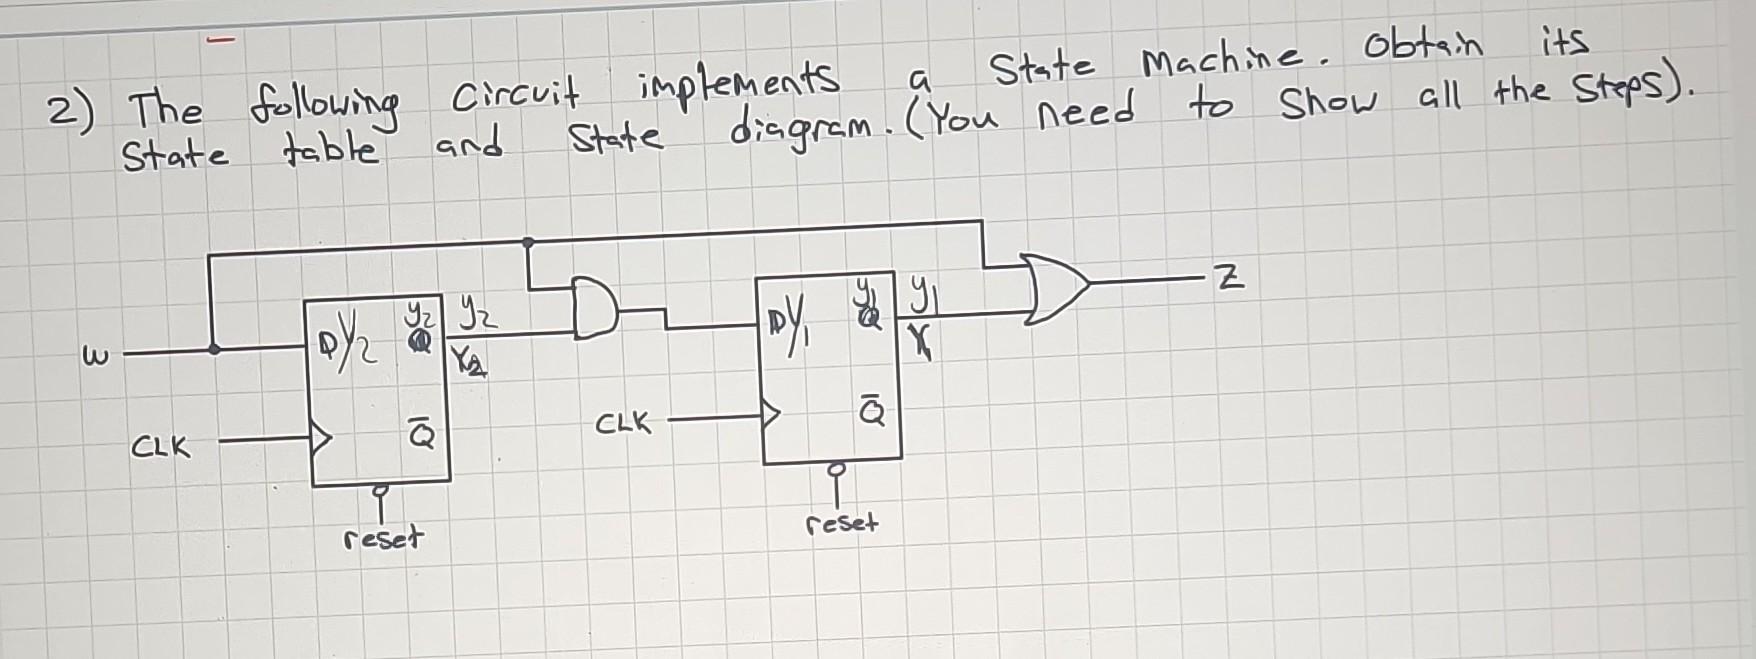 2) The following circuit implements a state machine. Obtain its
state table and state diagram. (You need to show all the steps).
w
DY2 y2 Q̅
y2
CLK
reset
DY1 y1 Q̅
y1
CLK
reset
Z